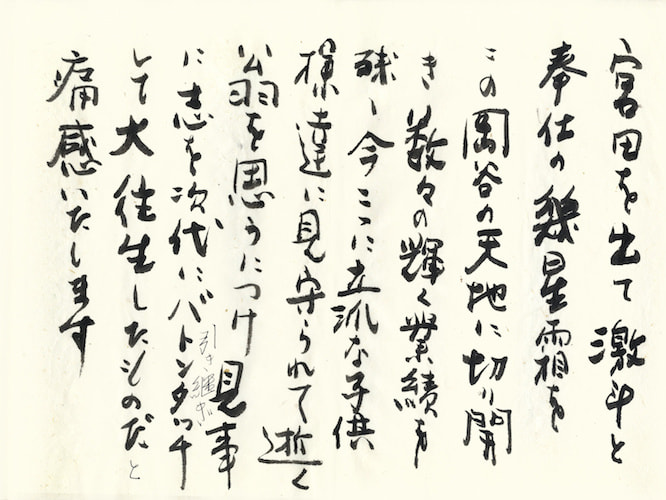 富田を出て激斗と
奉仕の幾星霜を
この岡谷の天地に切り開
き数々の輝く業績を
残し今ここに立派な子供
様達に見守られて逝く
公羽を思うにつけ見事
に志を次代にバトンタッチ
引き継ぎ
して大往生したものだと
痛感いたします